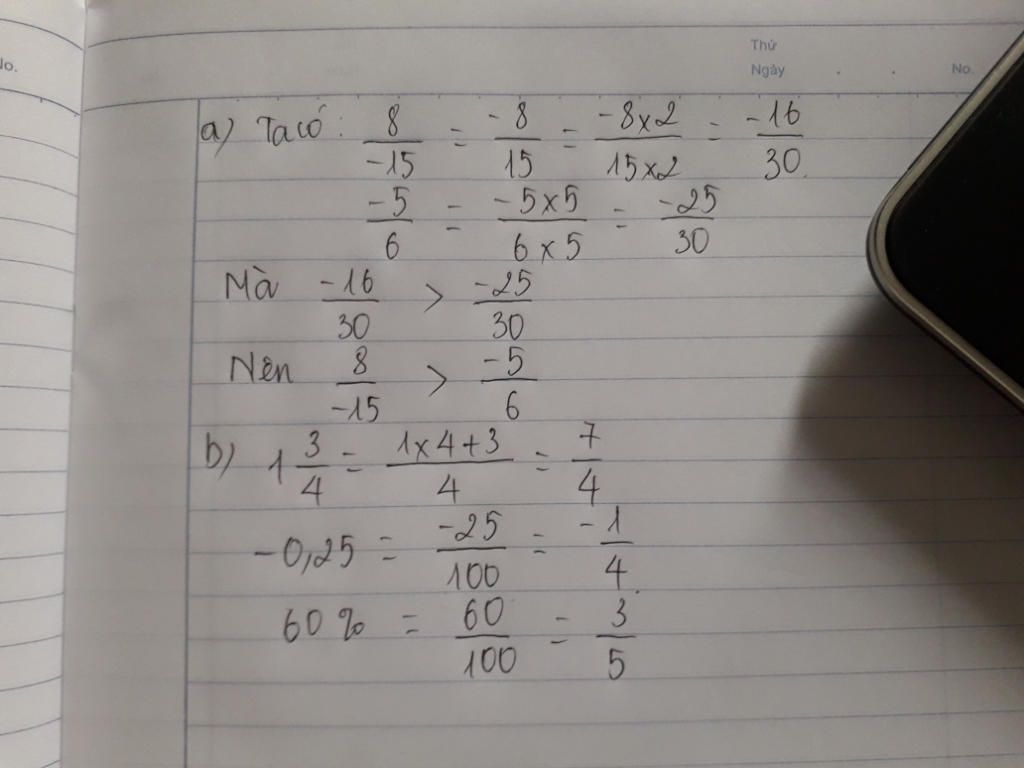 Thứ
Ngày . . No.
No.
a) Ta có: 8/-15 = -8/15 = -8x2/15x2 = -16/30
-5/6 = -5x5/6x5 = -25/30
Mà -16/30 > -25/30
Nên 8/-15 > -5/6
b) 1 3/4 = 1x4+3/4 = 7/4
-0,25 = -25/100 = -1/4
60% = 60/100 = 3/5